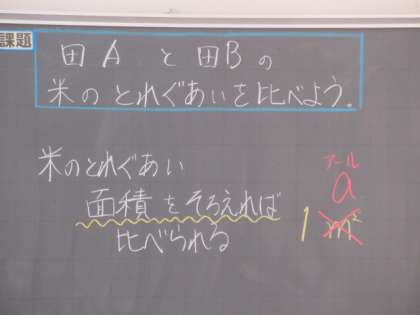 課題
田Aと田Bの
米のとれぐあいを比べよう。
米のとれぐあい
面積をそろえれば
比べられる
アール
a
1 m²